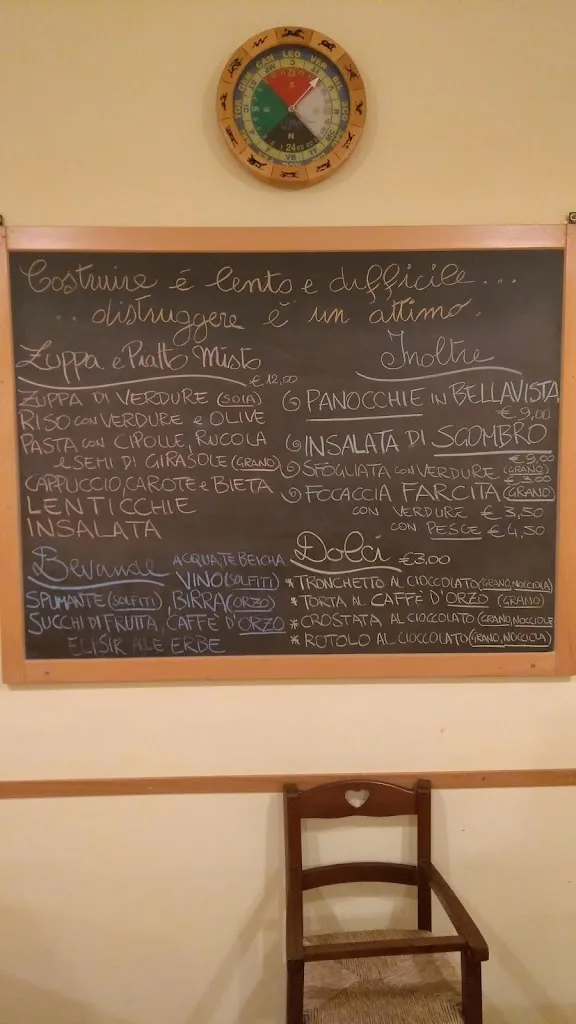 CAN LEO VER
Costruire è lento e difficile...
.. distruggere è un attimo.
Zuppa e Piatto Misto
€12,00
ZUPPA DI VERDURE (SOIA)
RISO CON VERDURE e OLIVE
PASTA CON CIPOLLE, RUCOLA
e SEMI DI GIRASOLE (GRANO)
CAPPUCCIO, CAROTE e BIETA
LENTICCHIE
INSALATA
Inoltre
PANOCCHIE IN BELLAVISTA
€ 9,00
INSALATA DI SGOMBRO
€ 9,00
SFOGLIATA CON VERDURE (GRANO)
€ 3,00
FOCACCIA FARCITA (GRANO)
CON VERDURE € 3,50
CON PESCE € 4,50
Bevande ACQUA, TE BEICHA
VINO (SOLFITI)
SPUMANTE (SOLFITI), BIRRA (ORZO)
SUCCHI DI FRUTTA, CAFFE' D'ORZO
ELISIR ALE ERBE
Dolci €3,00
* TRONCHETTO AL CIOCCOLATO (GRANO, NOCCIOLA)
* TORTA AL CAFFE' D'ORZO (GRANO)
* CROSTATA AL CIOCCOLATO (GRANO, NOCCIOLE
* ROTOLO AL CIOCCOLATO (GRANO, NOCCIOLA)